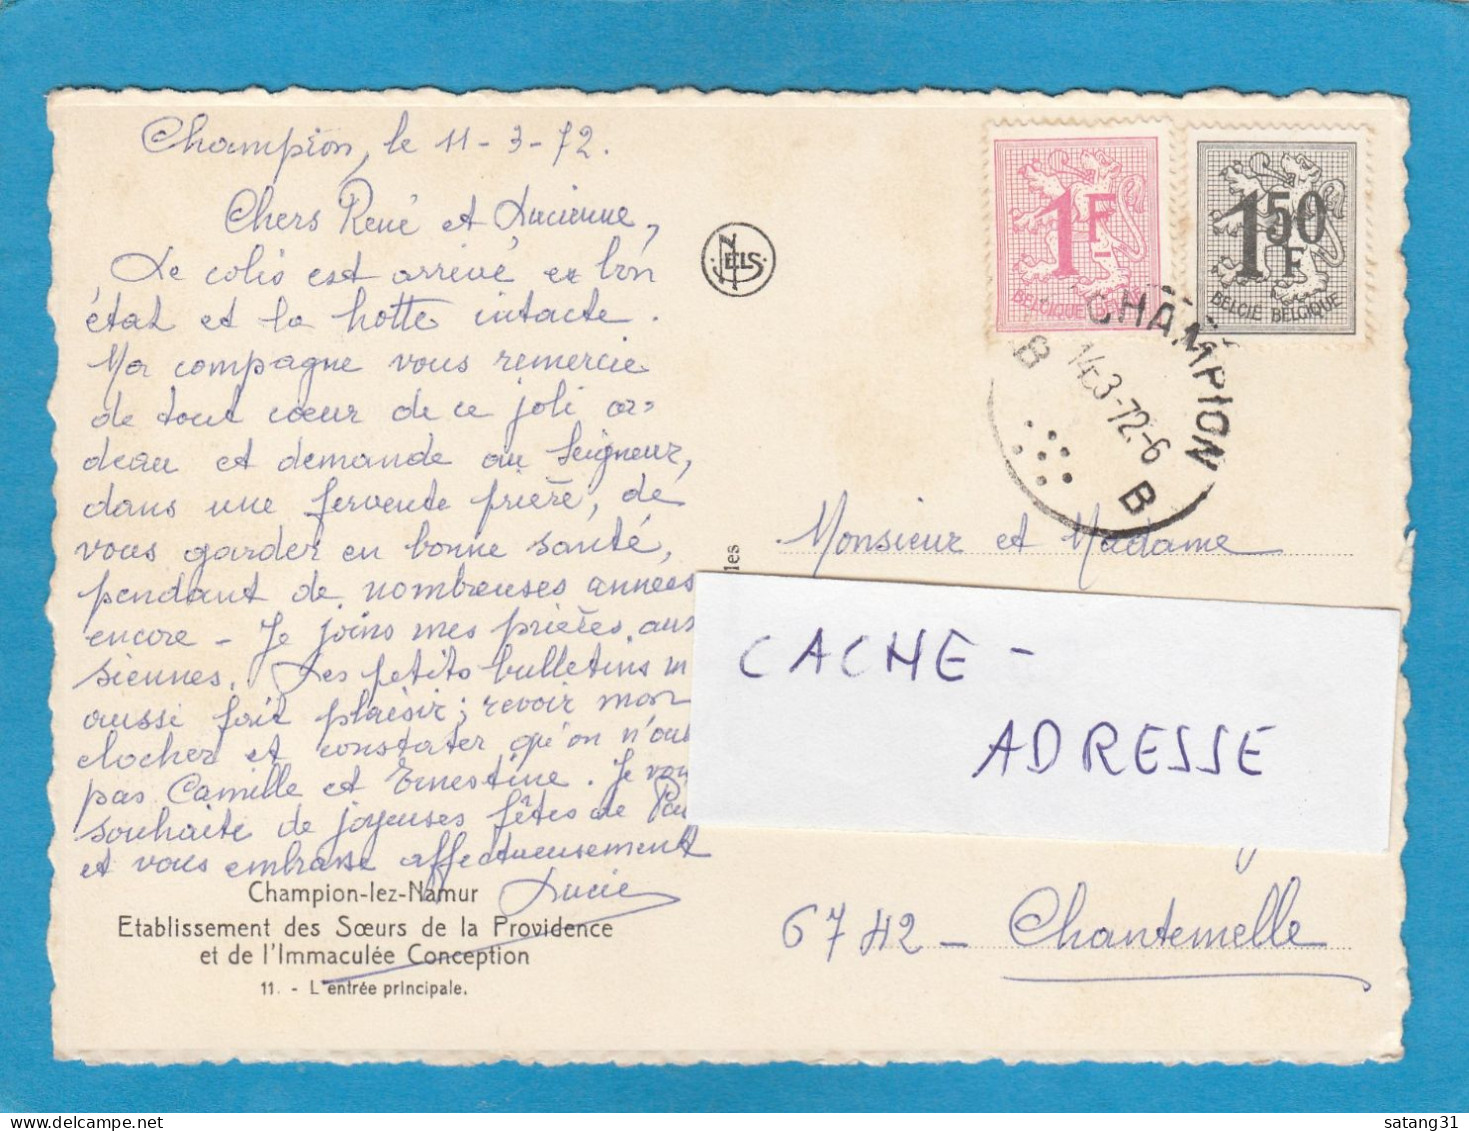 Champion, le 11-3-72.
Chers René et Lucienne,
Le colis est arrivé en bon
état et la hotte intacte.
Ma compagne vous remercie
de tout cœur de ce joli ca=
deau et demande au Seigneur,
dans une fervente prière, de
vous garder en bonne santé,
pendant de nombreuses années
encore - Je joins mes prières aux
siennes. Les petits bulletins m
aussi fait plaisir; revoir mon
clocher et constater qu'on n'oub
pas Camille et Ernestine. Je vou
souhaite de joyeuses fêtes de Pâ
et vous embrasse affectueusement
Lucie
Champion-lez-Namur
Etablissement des Sœurs de la Providence
et de l'Immaculée Conception
11. - L'entrée principale.
NELS
les
1F
BELGIQUE BELGIE
1,50
F
BELGIE BELGIQUE
CHAMPION
B 14-3-72-6 B
Monsieur et Madame
CACHE -
ADRESSE
6742 - Chantemelle
satang31